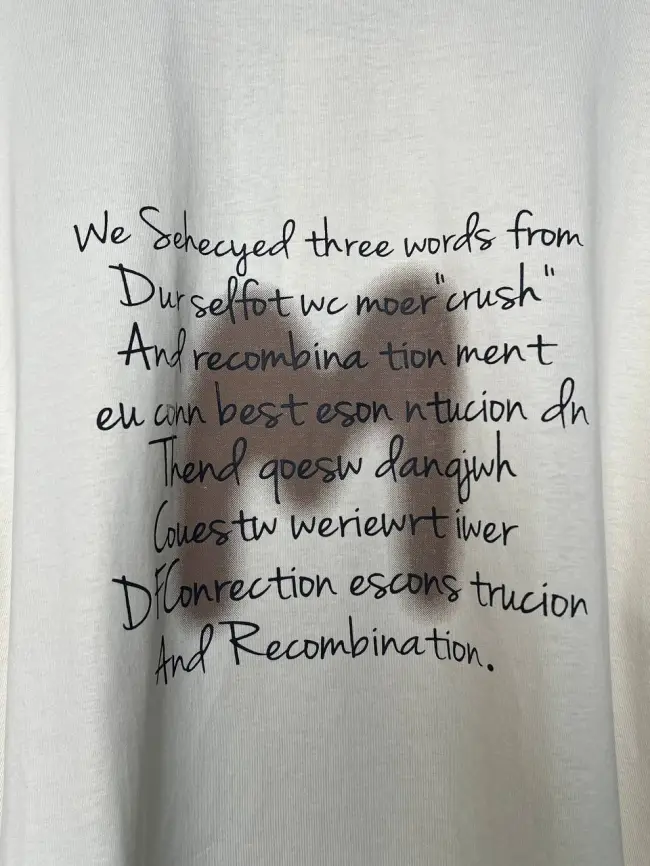 We Sehecyed three words from
Durselfot wc moer "crush"
And recombina tion ment
eu cınn best eson ntucion dn
Thend qoesw danqjwh
Couestw weriewrt iwer
DFConrection escons trucion
And Recombination.